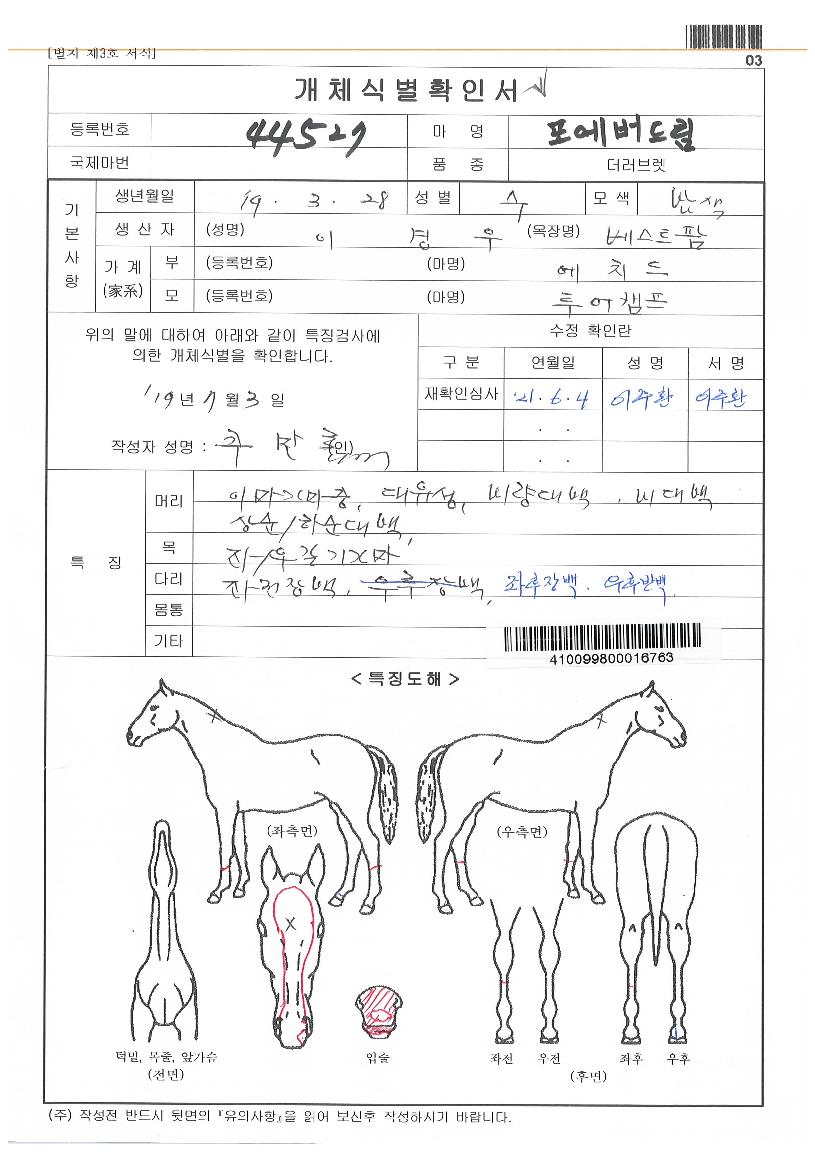 [별지 제3호 서식]
03
개체식별확인서
등록번호 44527 마 명 포에버드림
국제마번 품 종 더러브렛
기본사항
생년월일 '19. 3. 28 성별 수 모색 밤색
생 산 자 (성명) 이 경 우 (목장명) 베스트팜
가 계 (家系) 부 (등록번호) (마명) 에 치 드
모 (등록번호) (마명) 투어캠프
위의 말에 대하여 아래와 같이 특징검사에
의한 개체식별을 확인합니다.
'19년 7월 3일
작성자 성명 : (인)
수정 확인란
구 분 연월일 성 명 서 명
재확인심사 '21. 6. 4 이주환 이주환
. .
. .
특 징
머리 이마가마중, 대유성, 비량대백, 비대백
상순/하순대백,
목 좌/우갈기가마
다리 좌전장백, 우후장백, 좌후장백. 우후반백.
몸통
기타
410099800016763
< 특징도해 >
(좌측면) (우측면)
턱밑, 목줄, 앞가슴
(전면)
입술
좌전 우전 좌후 우후
(후면)
(주) 작성전 반드시 뒷면의 『유의사항』을 읽어 보신후 작성하시기 바랍니다.